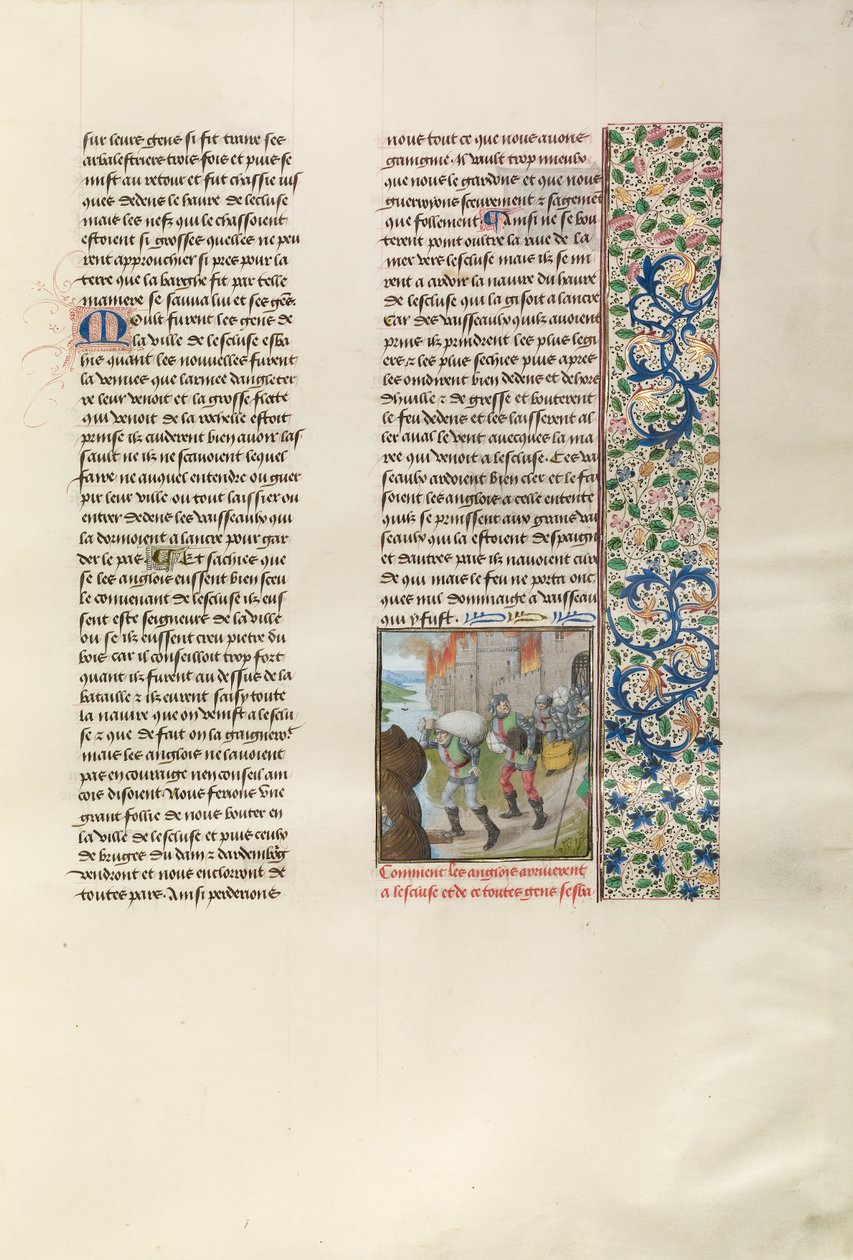 sur leurs gens si fit traire ses
arbalestriers trois fois et puis se
mist au retour et fut chassie ius
ques dedens le havre de lescluse
mais les nefz qui le chassoient
estoient si grosses quelles ne peu
rent approuchier si pres pour la
terre que la barghe fit par telle
maniere se sauva lui et ses gẽs.
Moult furent les gens de
la ville de lescluse esba
his quant les nouvelles furent
la venues que larmee dangleter
re leur venoit et la grosse flotte
qui venoit de la rochelle estoit
prinse ilz cuiderent bien avoir las
sault ne ilz ne scavoient lequel
faire ne auquel entendre ou guer
pir leur ville ou tout laissier ou
entrer dedens les vaisseaulx qui
la dormoient a lancre pour gar
der le pas. Et sachies que
se les anglois eussent bien sceu
le convenant de lescluse ilz eus
sent este seigneurs de la ville
ou se ilz eussent creu pietre du
bois car il conseilloit trop fort
quant ilz furent au dessus de la
bataille ⁊ ilz eurent saisy toute
la navire que on venist a lesclu
se ⁊ que de fait on la gaigneroit
mais les anglois ne lavoient
pas en couraige nen conseil ain
cois disoient Nous ferions une
grant follie de nous bouter en
la ville de lescluse et puis ceulx
de bruges du dam ⁊ dardembourg
vendront et nous enclorront de
toutes pars. Ainsi perderions
nous tout ce que nous avons
gaingnie. Il vault trop mieulx
que nous le gardons et que nous
guerryons seurement ⁊ sagement
que follement. Ainsi ne se bou
terent point oultre la rive de la
mer vers lescluse mais ilz se mi
rent a ardoir la navire du havre
de lescluse qui la gisoit a lancre
Car des vaisseaulx quilz avoient
prins ilz prindrent les plus legi
ers ⁊ les plus sechies puis apres
les oindirent bien dedens et dehors
dhuille ⁊ de gresse et bouterent
le feu dedens et les laisserent al
ler aval le vent avecques la ma
ree qui venoit a lescluse. Ces vai
seaulx ardoient bien cler et le fai
soient les anglois a celle entente
quilz se prinssent aux grans vai
seaulx qui la estoient despaigne
et dautres pais ilz navoient cure
de qui mais le feu ne porta onc
ques nul dommaige a vaisseau
qui y fust.
Comment les anglois arriverent
a lescluse et de ce toutes gens sesba